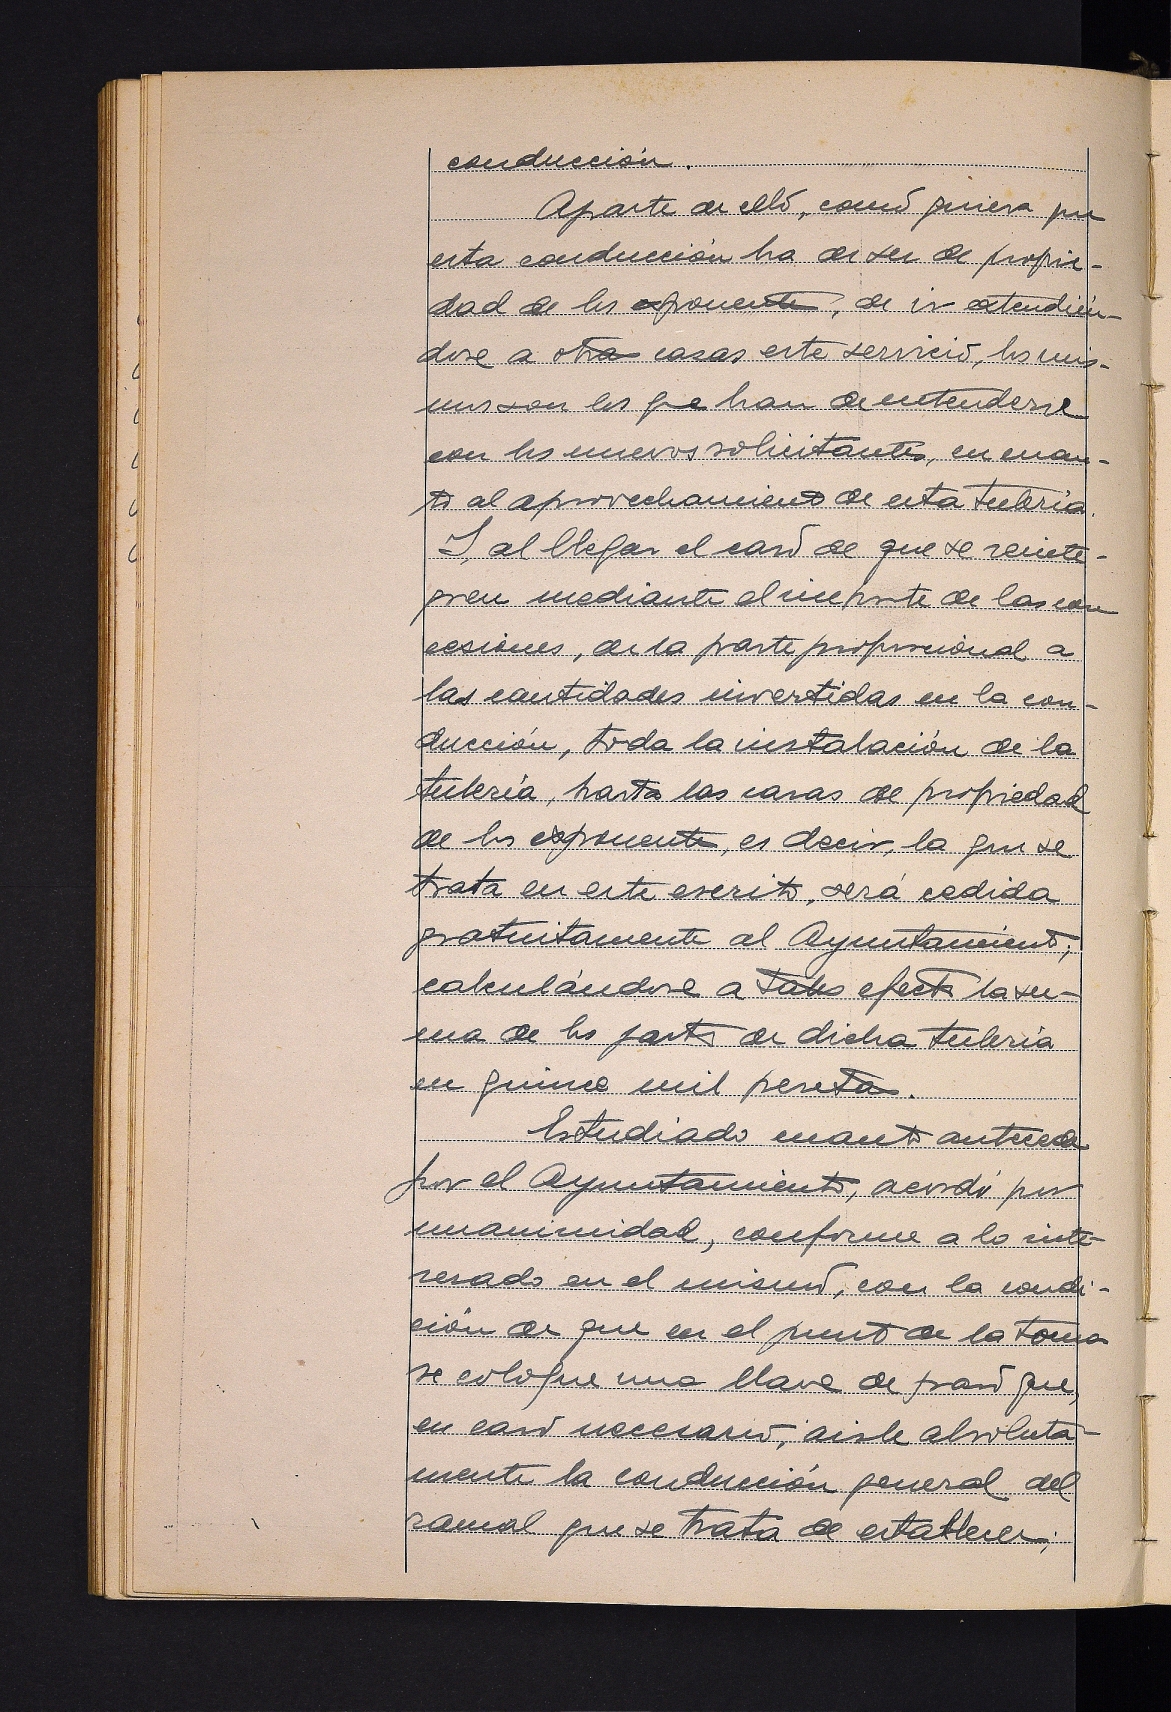 conducción.
Aparte de ello, como quiera que
esta conducción ha de ser de propie-
dad de los exponentes, de ir extendién-
dose a otras casas este servicio, los mis-
mos son los que han de entenderse
con los nuevos solicitantes, en cuan-
to al aprovechamiento de esta tubería.
Y, al llegar el caso de que se reinte-
gren mediante el importe de las con
cesiones, de la parte proporcional a
las cantidades invertidas en la con-
ducción, toda la instalación de la
tubería, hasta las casas de propiedad
de los exponentes, es decir, la que se
trata en este escrito, será cedida
gratuitamente al Ayuntamiento;
calculándose a tales efectos la su-
ma de los gastos de dicha tubería
en quince mil pesetas.
Estudiado cuanto antecede
por el Ayuntamiento, acordó por
unanimidad, conforme a lo inte-
resado en el mismo, con la condi-
ción de que en el punto de la toma
se coloque una llave de paso que,
en caso necesario, aisle absoluta-
mente la conducción general del
ramal que se trata de establecer;